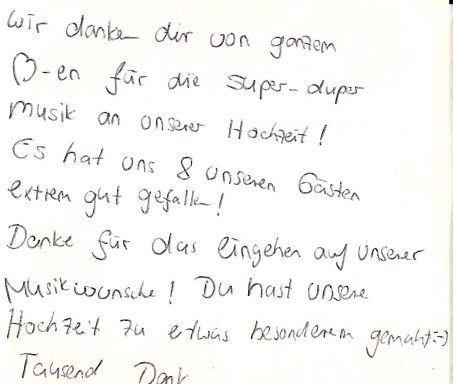 Wir danken dir von ganzem
♡-en für die super-duper
Musik an unserer Hochzeit!
Es hat uns & unseren Gästen
extrem gut gefallen!
Danke für das eingehen auf unserer
Musikwünsche! Du hast unsere
Hochzeit zu etwas besonderem gemacht :-)
Tausend Dank